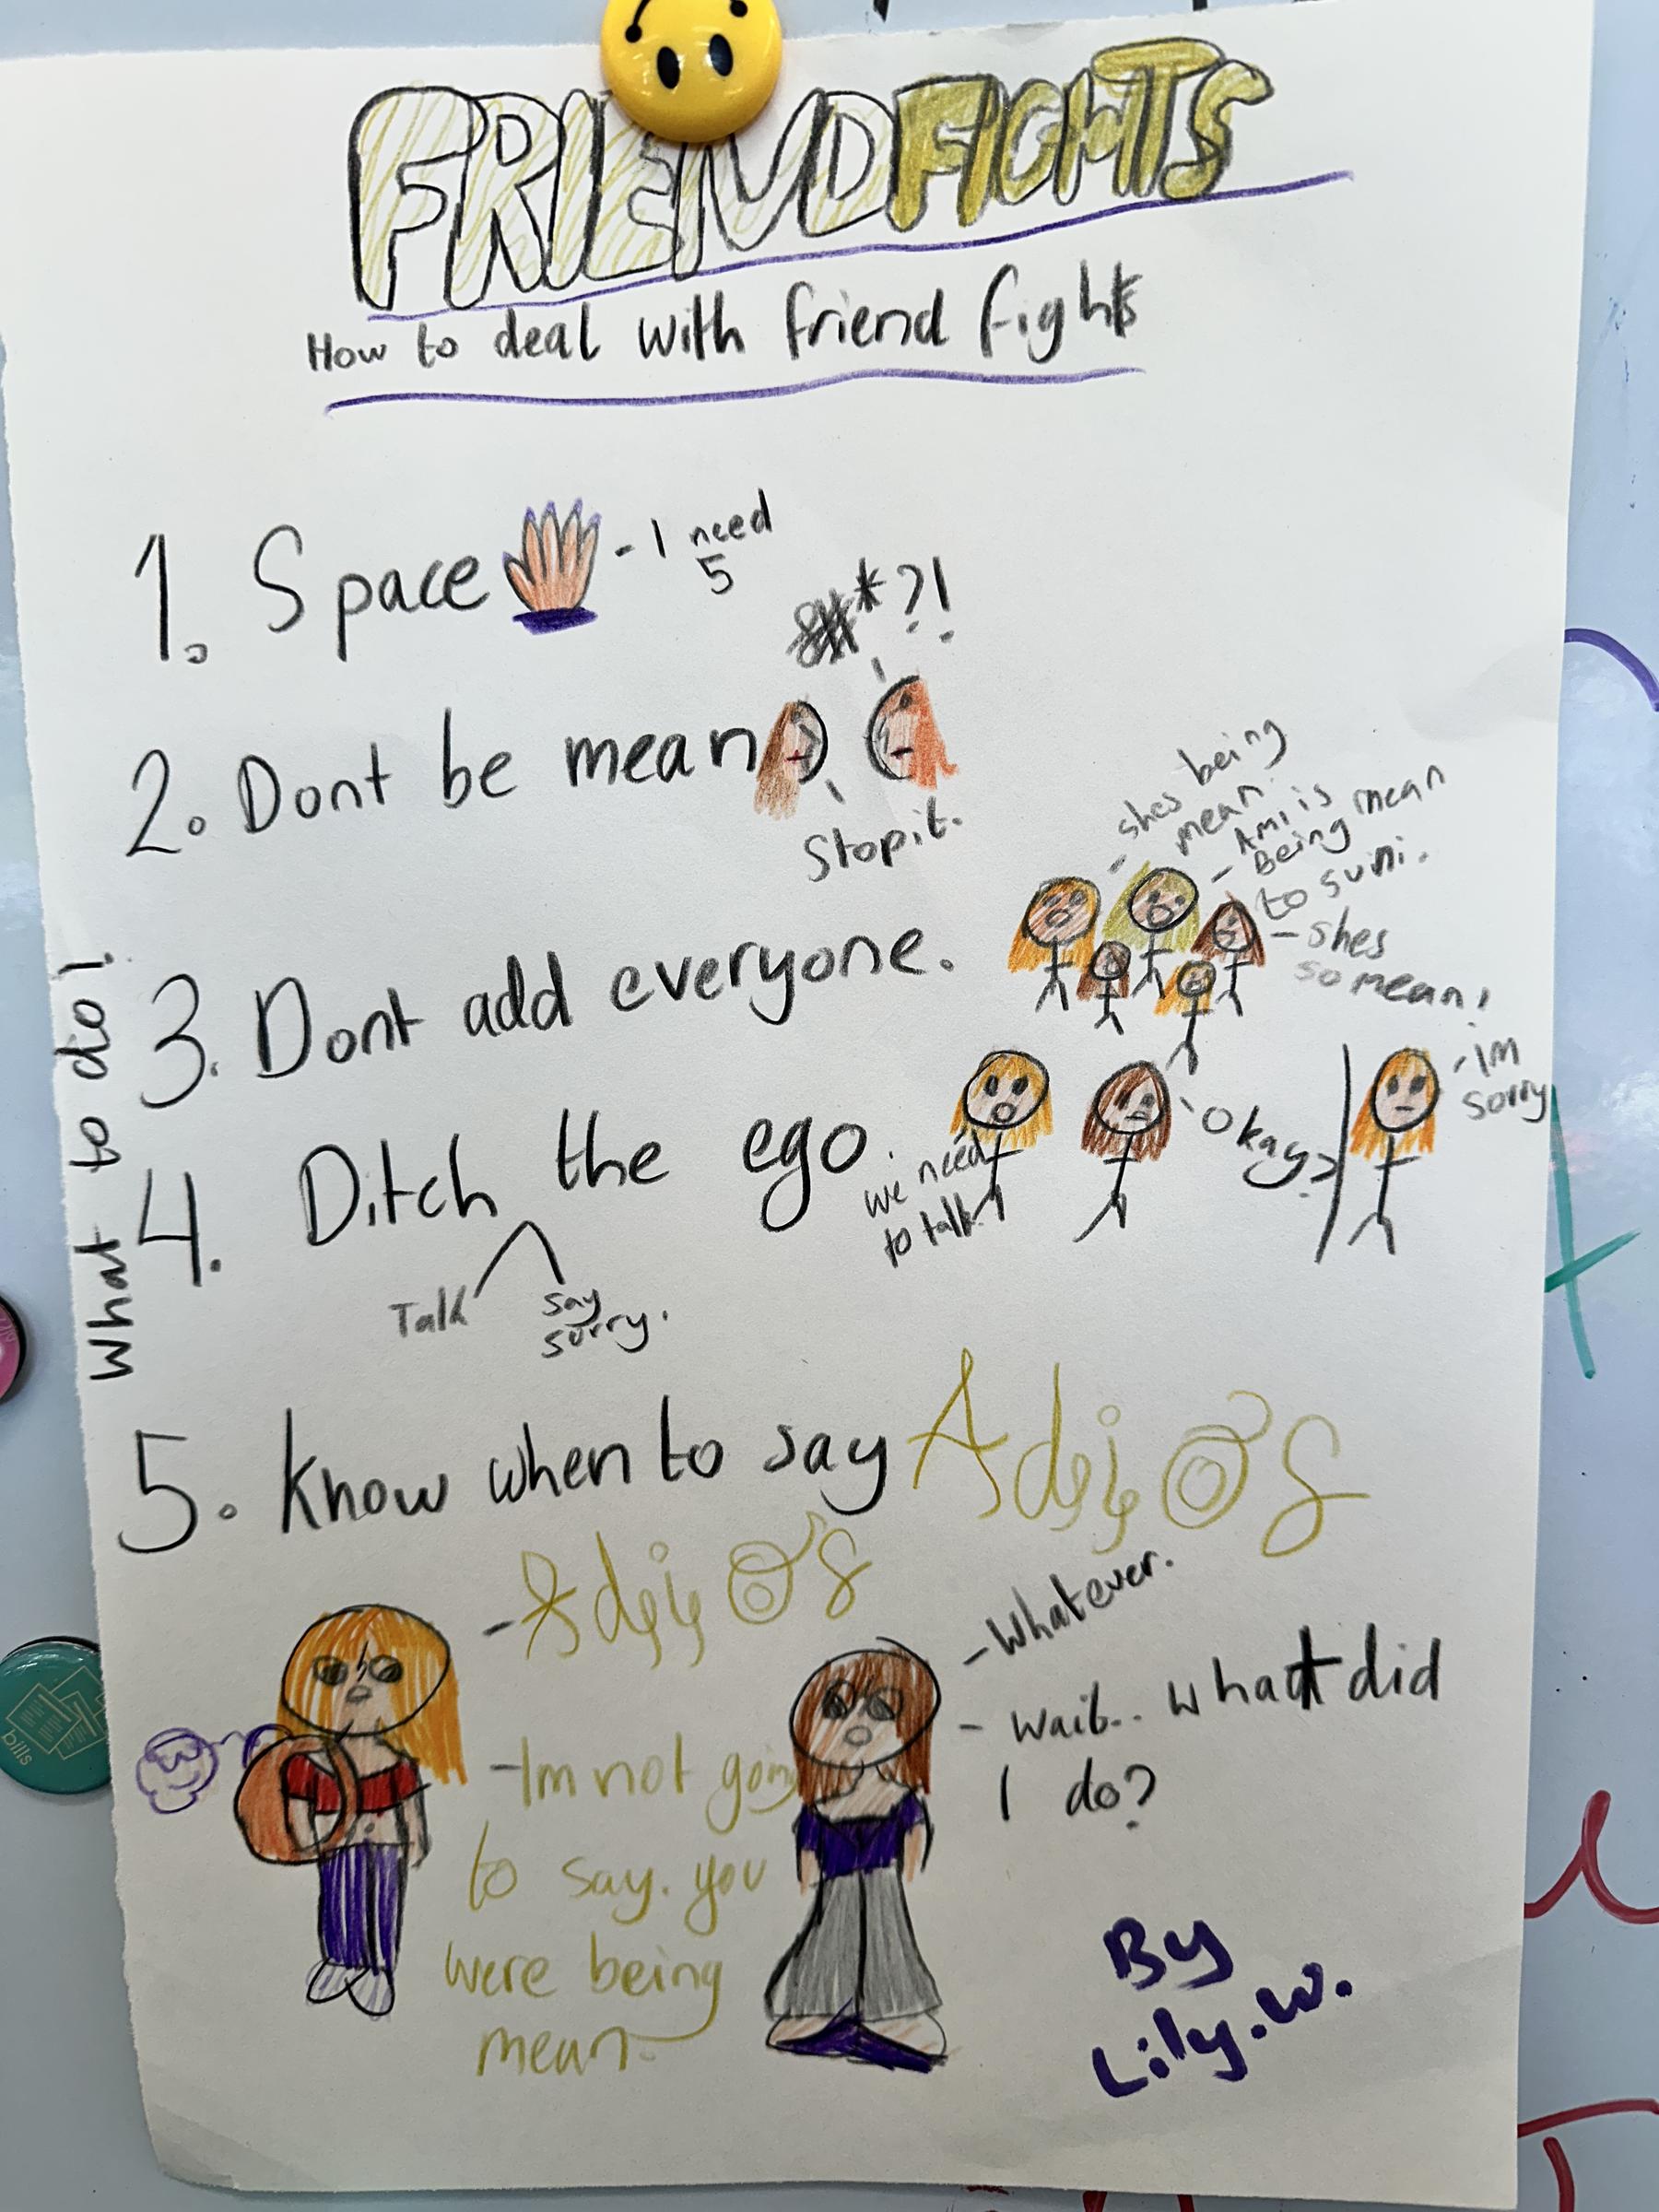 FRIENDFIGHTS
How to deal with friend fights
What to do!
1. Space
- I need
5
&#*?!
2. Dont be mean
Stop it.
- shes being
mean.
- Ami is
Being mean
to suni.
3. Dont add everyone.
- shes
so mean!
4. Ditch the ego.
Talk
say
sorry.
we need
to talk
Okay?
- im
sorry
5. Know when to say Adiós
- Adiós
- Whatever.
- Wait.. what did
I do?
- Im not going
to say. you
were being
mean.
By
Lily.W.
bills